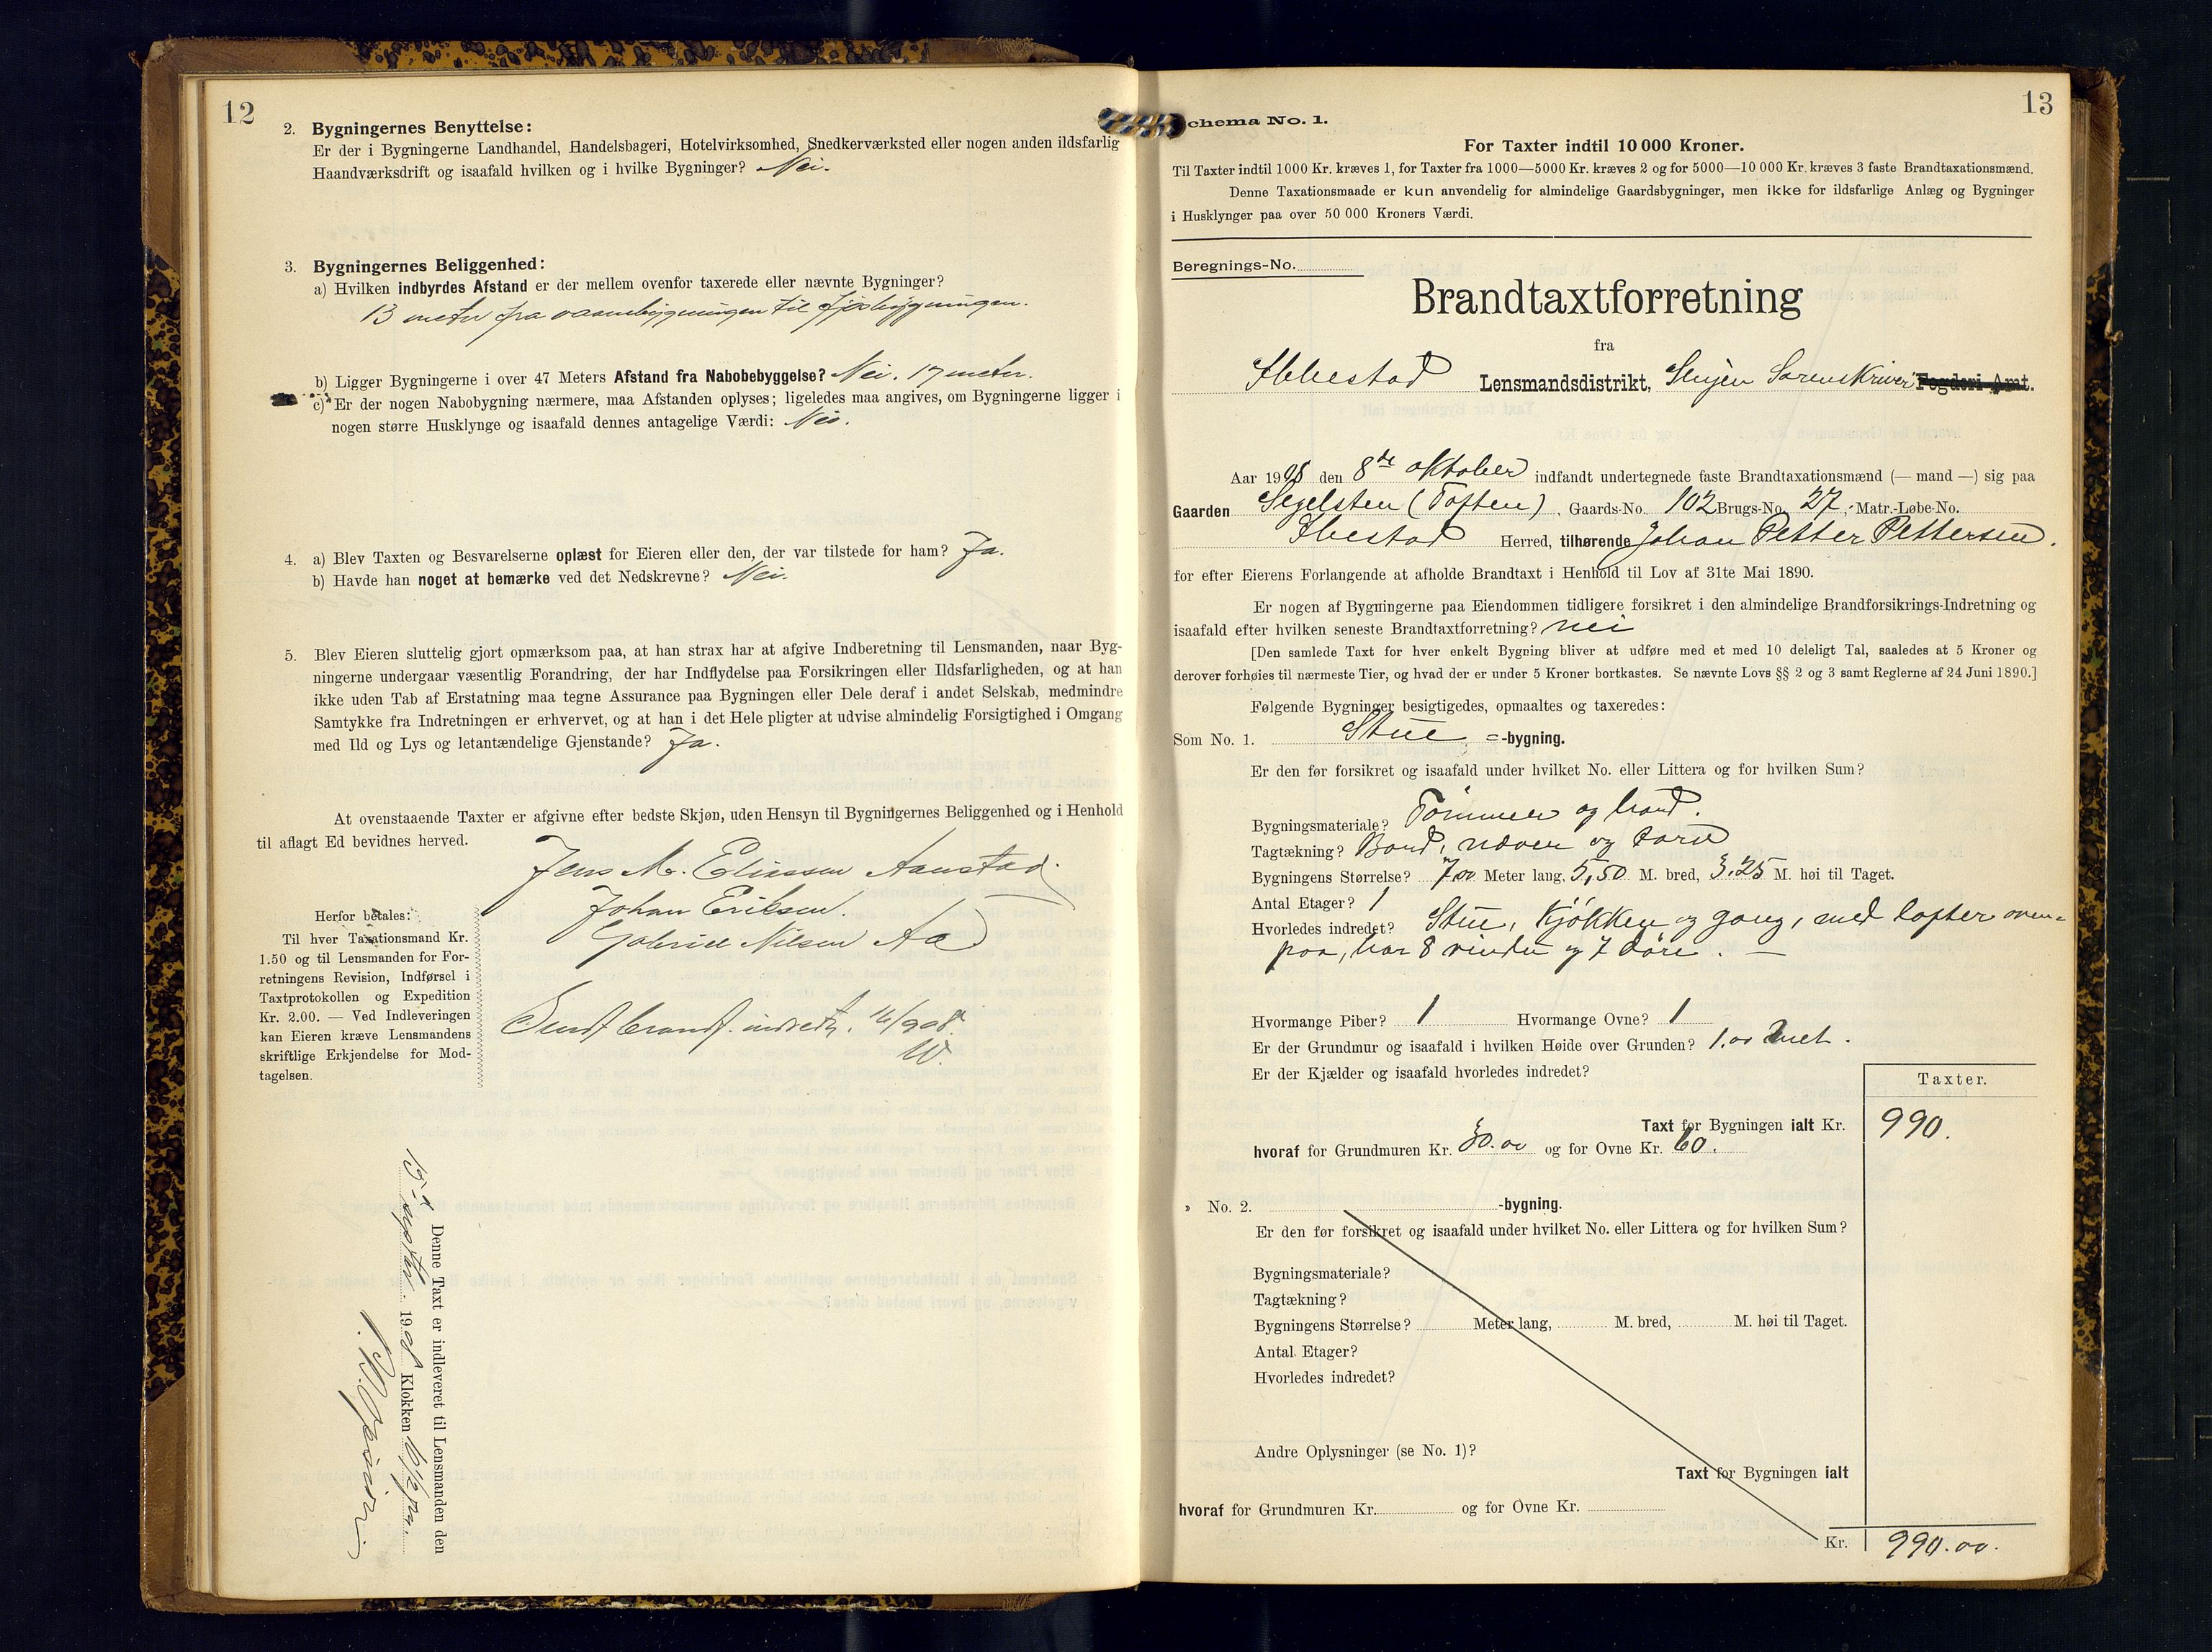 12
2. Bygningernes Benyttelse:
Er der i Bygningerne Landhandel, Handelsbageri, Hotelvirksomhed, Snedkerværksted eller nogen anden ildsfarlig
Haandværksdrift og isaafald hvilken og i hvilke Bygninger? Nei.
3. Bygningernes Beliggenhed:
a) Hvilken indbyrdes Afstand er der mellem ovenfor taxerede eller nævnte Bygninger?
13 meter fra vaanebygningen til fjøsbygningen.
b) Ligger Bygningerne i over 47 Meters Afstand fra Nabobebyggelse? Nei. 17 meter.
c) Er der nogen Nabobygning nærmere, maa Afstanden oplyses; ligeledes maa angives, om Bygningerne ligger i
nogen større Husklynge og isaafald dennes antagelige Værdi: Nei.
4. a) Blev Taxten og Besvarelserne oplæst for Eieren eller den, der var tilstede for ham? Ja.
b) Havde han noget at bemærke ved det Nedskrevne? Nei.
5. Blev Eieren sluttelig gjort opmærksom paa, at han strax har at afgive Indberetning til Lensmanden, naar Byg-
ningerne undergaar væsentlig Forandring, der har Indflydelse paa Forsikringen eller Ildsfarligheden, og at han
ikke uden Tab af Erstatning maa tegne Assurance paa Bygningen eller Dele deraf i andet Selskab, medmindre
Samtykke fra Indretningen er erhvervet, og at han i det Hele pligter at udvise almindelig Forsigtighed i Omgang
med Ild og Lys og letantændelige Gjenstande? Ja.
At ovenstaaende Taxter er afgivne efter bedste Skjøn, uden Hensyn til Bygningernes Beliggenhed og i Henhold
til aflagt Ed bevidnes herved.
Jens M. Eliassen Aanstad.
Johan Eriksen.
Gabriel Nilsen Aa
Herfor betales:
Til hver Taxationsmand Kr.
1.50 og til Lensmanden for For-
retningens Revision, Indførsel i
Taxtprotokollen og Expedition
Kr. 2.00. — Ved Indleveringen
kan Eieren kræve Lensmandens
skriftlige Erkjendelse for Mod-
tagelsen.
Sendt brandf. indretn. /908.
Denne Taxt er indleveret til Lensmanden den
1908 Klokken 6 1/2
13
Schema No. 1.
For Taxter indtil 10 000 Kroner.
Til Taxter indtil 1000 Kr. kræves 1, for Taxter fra 1000—5000 Kr. kræves 2 og for 5000—10 000 Kr. kræves 3 faste Brandtaxationsmænd.
Denne Taxationsmaade er kun anvendelig for almindelige Gaardsbygninger, men ikke for ildsfarlige Anlæg og Bygninger
i Husklynger paa over 50 000 Kroners Værdi.
Beregnings-No.
Brandtaxtforretning
fra
Ibbestad Lensmandsdistrikt, Senjen Sorenskriveri Fogderi Amt.
Aar 1908 den 8de oktober indfandt undertegnede faste Brandtaxationsmænd (— mand —) sig paa
Gaarden Segelsten (Toften). Gaards-No. 102 Brugs-No. 27, Matr.-Løbe-No.
Ibestad Herred, tilhørende Johan Petter Pettersen.
for efter Eierens Forlangende at afholde Brandtaxt i Henhold til Lov af 31te Mai 1890.
Er nogen af Bygningerne paa Eiendommen tidligere forsikret i den almindelige Brandforsikrings-Indretning og
isaafald efter hvilken seneste Brandtaxtforretning? nei
[Den samlede Taxt for hver enkelt Bygning bliver at udføre med et med 10 deleligt Tal, saaledes at 5 Kroner og
derover forhøies til nærmeste Tier, og hvad der er under 5 Kroner bortkastes. Se nævnte Lovs §§ 2 og 3 samt Reglerne af 24 Juni 1890.]
Følgende Bygninger besigtigedes, opmaaltes og taxeredes:
Som No. 1. Stue =-bygning.
Er den før forsikret og isaafald under hvilket No. eller Littera og for hvilken Sum?
Bygningsmateriale? Tømmer og bord.
Tagtækning? Bord, næver og torv
Bygningens Størrelse? 7,00 Meter lang, 5,50 M. bred, 3,25 M. høi til Taget.
Antal Etager? 1
Hvorledes indredet? Stue, Kjøkken og gang, med lofter oven=
paa, har 8 vinduer og 7 døre. —
Hvormange Piber? 1 Hvormange Ovne? 1
Er der Grundmur og isaafald i hvilken Høide over Grunden? 1.00 met.
Er der Kjælder og isaafald hvorledes indredet?
Taxter.
Taxt for Bygningen ialt Kr. 990.
hvoraf for Grundmuren Kr. 30.00 og for Ovne Kr. 60.
» No. 2. -bygning.
Er den før forsikret og isaafald under hvilket No. eller Littera og for hvilken Sum?
Bygningsmateriale?
Tagtækning?
Bygningens Størrelse? Meter lang, M. bred, M. høi til Taget.
Antal Etager?
Hvorledes indredet?
Andre Oplysninger (se No. 1)?
Taxt for Bygningen ialt
hvoraf for Grundmuren Kr. og for Ovne Kr.
Kr. 990.00.